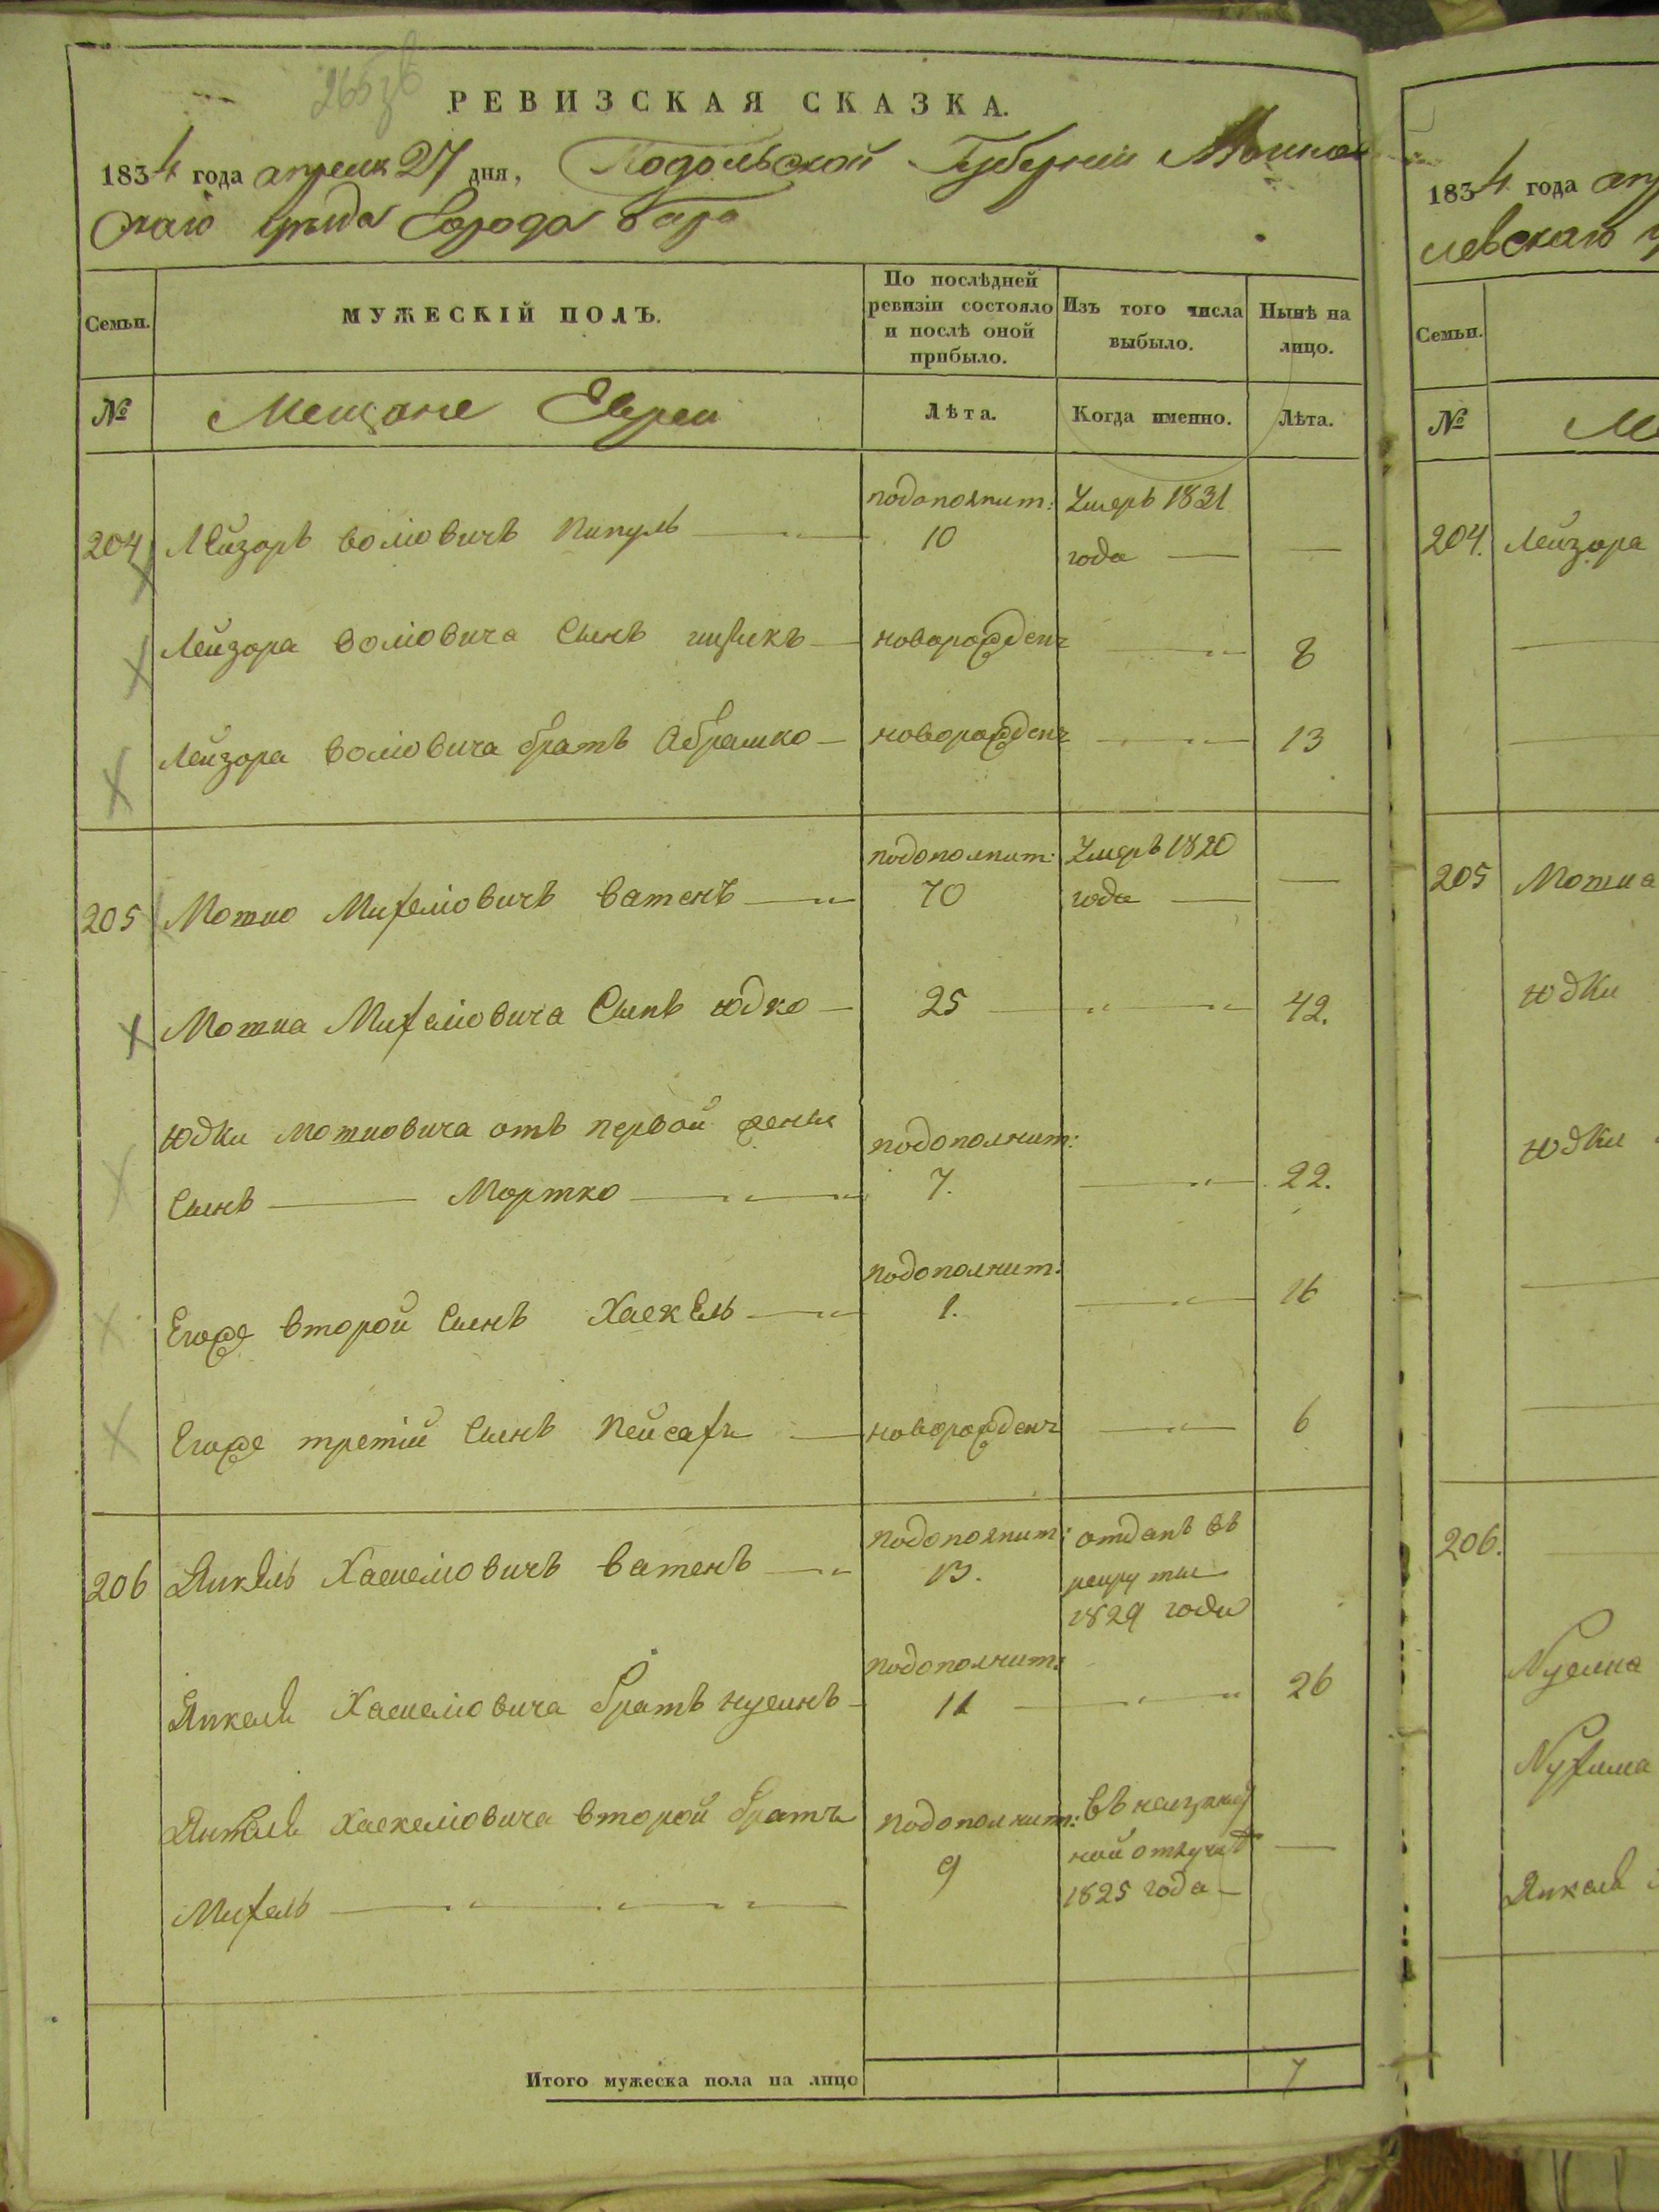 РЕВИЗСКАЯ СКАЗКА.
1834 года апреля 27 дня, Подольской Губернии
скаго уезда Города бара
Семьи.
МУЖЕСКІЙ ПОЛЪ.
По послѣдней ревизіи состояло и послѣ оной прибыло.
Изъ того числа выбыло.
Нынѣ на лицо.
№ Мещане Евреи Лѣта. Когда именно. Лѣта.
подополнит: Умеръ 1831
204 Лейзоръ Волювичъ Пипуль 10 года —
Лейзора Волювича Сынъ новорожденъ 8
Лейзора Волювича братъ Абрашко — новорожденъ 13
подополнит: Умеръ 1820
205 Мошко Михелювичъ Ватенъ 70 года —
Мошка Михелювича Сынъ юдко — 25 42.
юдки Мошковича отъ первой жены подополнит:
Сынъ — Мортко 7. 22.
подополнит:
Егоже второй Сынъ Хаскель 1. 16
Егоже третій Сынъ Пейсахъ новорожденъ 6
подополнит: отданъ въ
206 Янкель Хаскелювичъ Ватенъ 13. рекруты
1829 года
подополнит:
Янкеля Хаскелювича братъ нусинъ 11 26
Янкеля Хаскелювича второй братъ подополнит: въ
9 1825 года —
Михель
Итого мужеска пола на лицо 7
1834 года апр
левскаго у
Семьи.
№ Ме
204. Лейзора
205 Мошка
юдки
юдки
206.
Нусина
Нухима
Янкеля